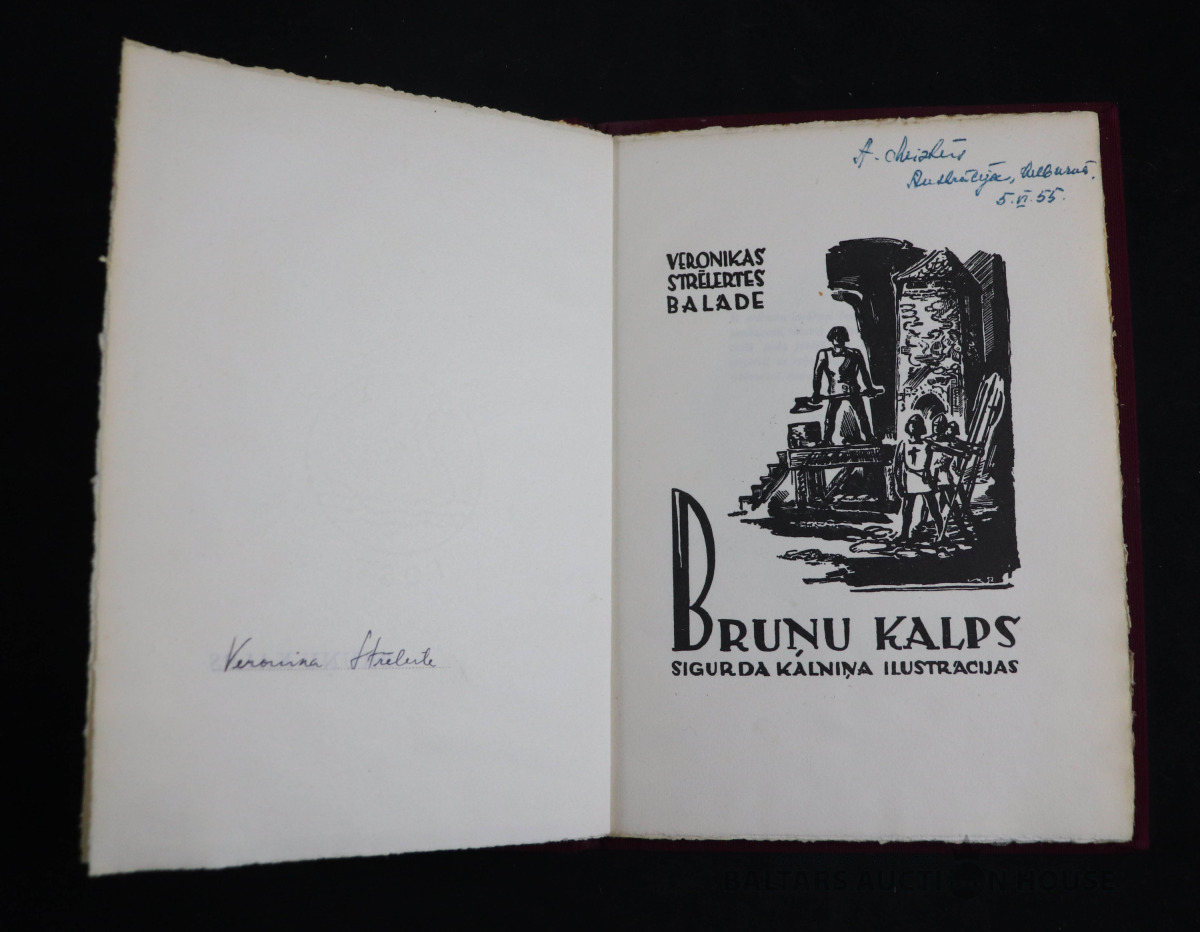 Veronika Strēlerte
A.
Austrālija, Melburnā.
5.VI.55.
VERONIKAS
STRĒLERTES
BALADE
BRUŅU KALPS
SIGURDA KALNIŅA ILUSTRACIJAS
BALTARS AUCTION HOUSE